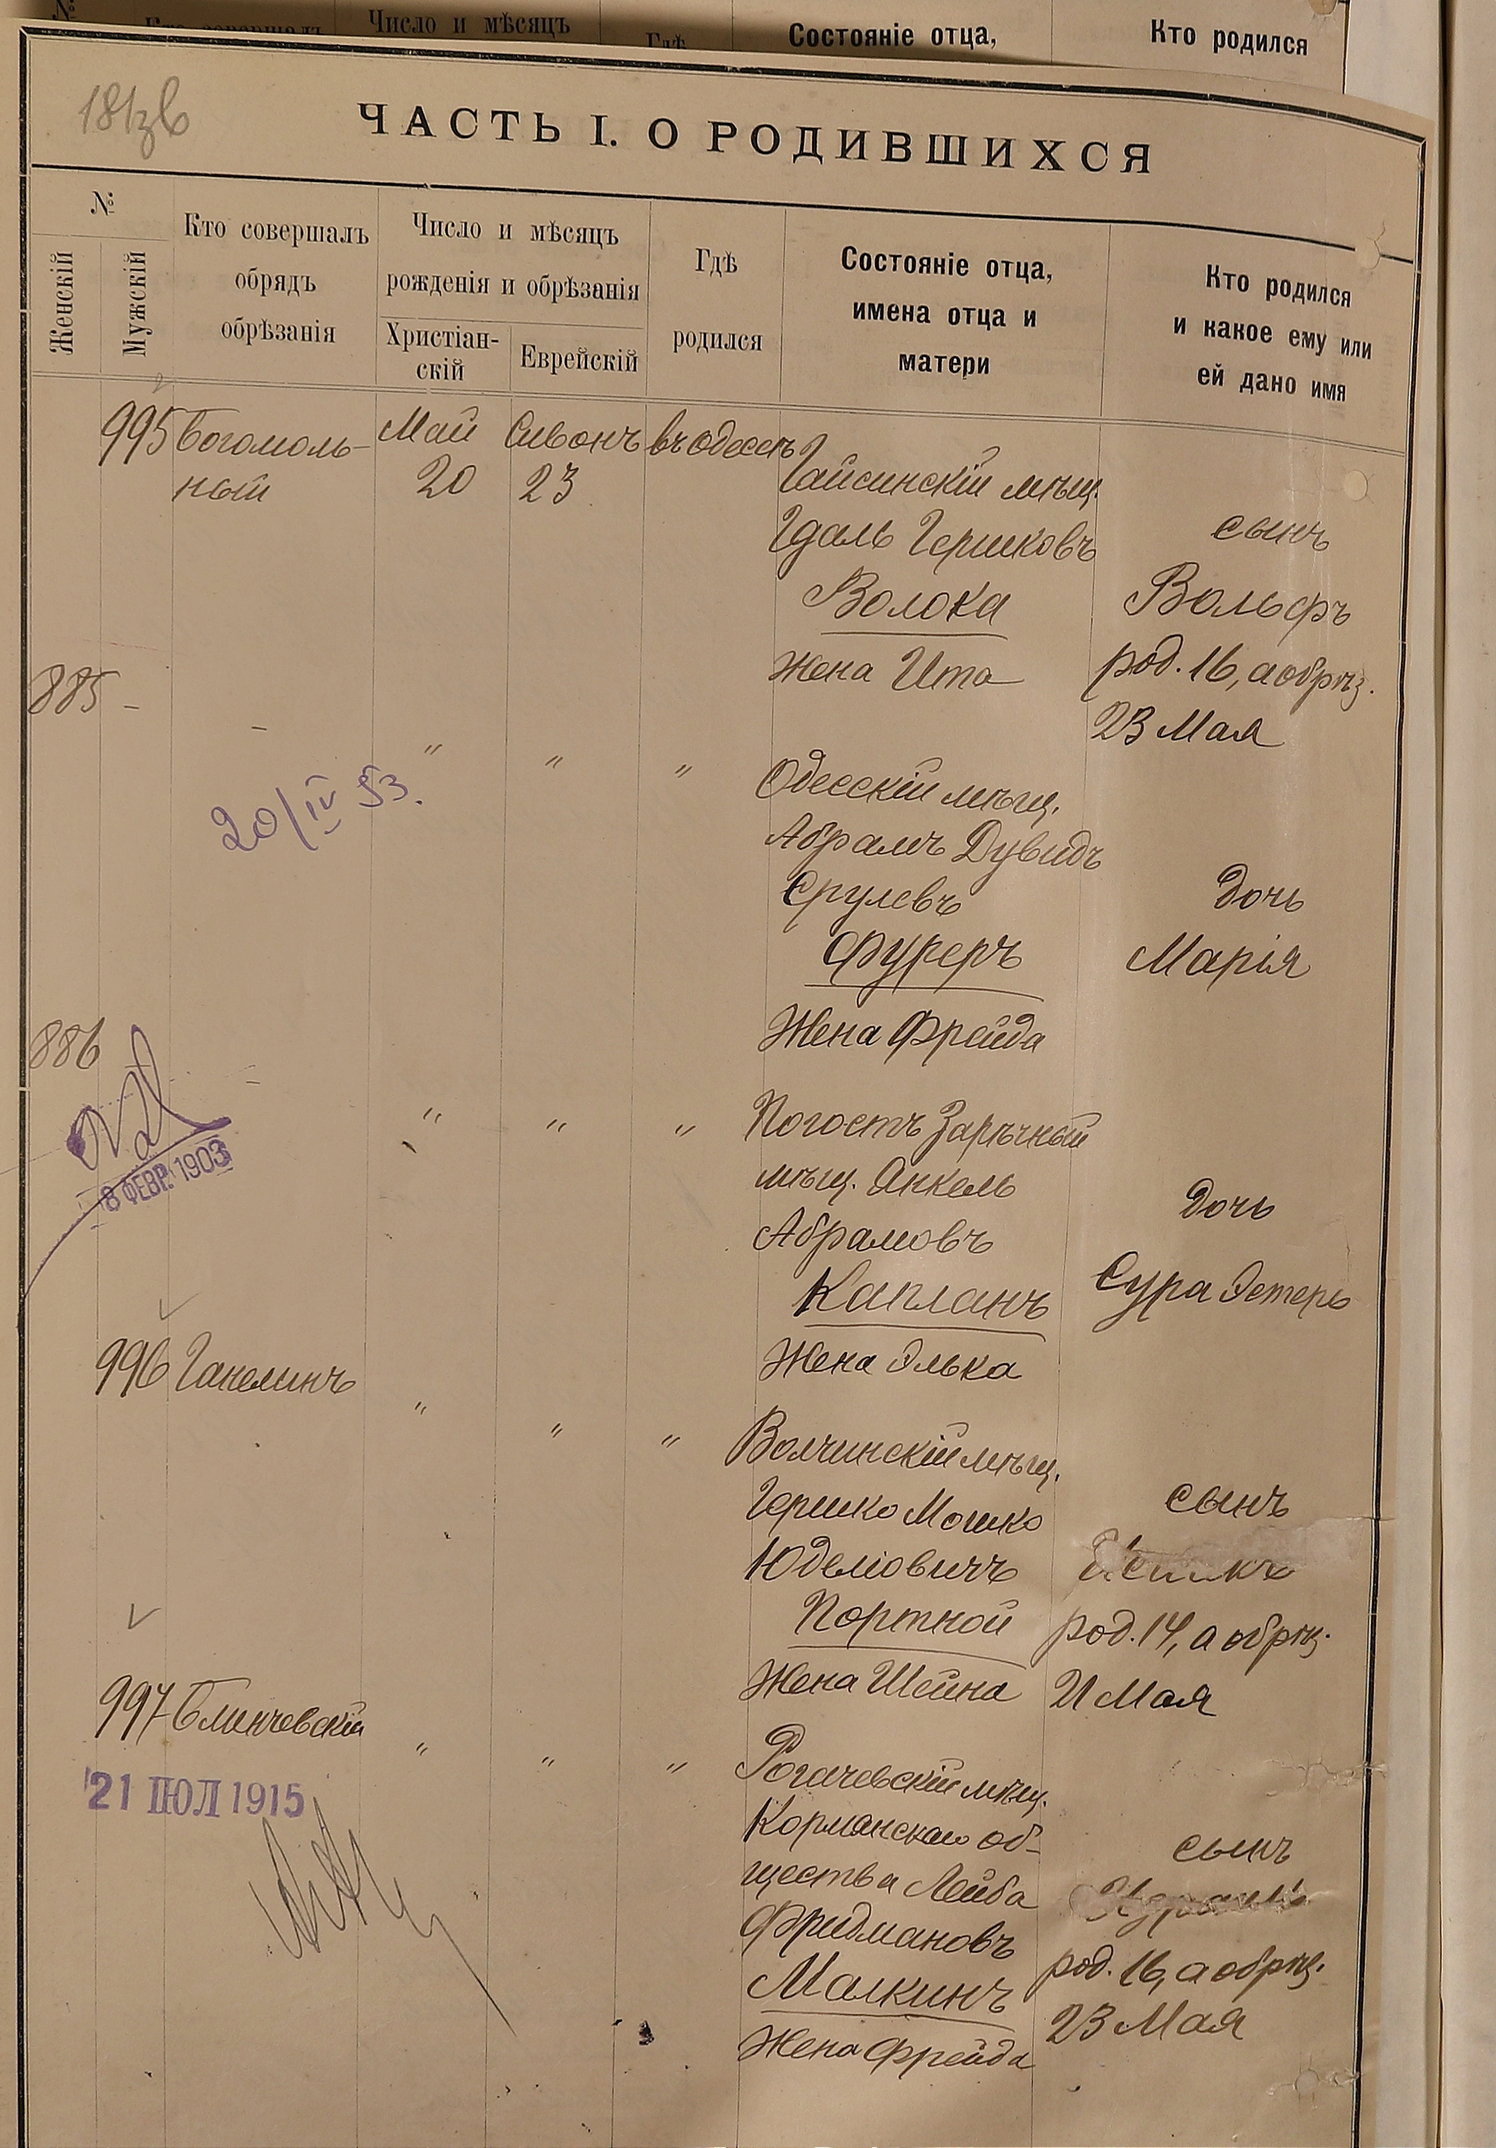 №
Число и мѣсяцъ
Состояніе отца,
Кто родился
ЧАСТЬ I. О РОДИВШИХСЯ
№
Женскій
Мужскій
Кто совершалъ
обрядъ
обрѣзанія
Число и мѣсяцъ
рожденія и обрѣзанія
Христіан-
скій
Еврейскій
Гдѣ
родился
Состояніе отца,
имена отца и
матери
Кто родился
и какое ему или
ей дано имя
995 Богомоль-
ный
Май
20
Сивонъ
23
въ Одессѣ
Гайсинскій мѣщ.
Гдаль Гершковъ
Волока
Жена Ита
сынъ
Вольфъ
род. 16, а обрѣз.
23 Мая
885 -
-
"
"
"
20/IV 53.
Одесскій мѣщ.
Абрамъ Дувидъ
Срулевъ
Фуреръ
Жена Фрейда
Дочь
Марія
886
-
8 ФЕВР. 1903
"
"
"
Погостъ Зарѣчный
мѣщ. Янкель
Абрамовъ
Капланъ
Жена Элька
Дочь
Сура Эстеръ
996 Ганелинъ
"
"
"
Волчинскій мѣщ.
Гершко Мошко
Юделіовичъ
Портной
Жена Шейна
сынъ
род. 14, а обрѣз.
21 Мая
997 Блинчевскій
21 ІЮЛ 1915
"
"
"
Рогачевскій мѣщ.
Корманскаго об-
щества Лейба
Фридмановъ
Малкинъ
Жена Фрейда
сынъ
род. 16, а обрѣз.
23 Мая